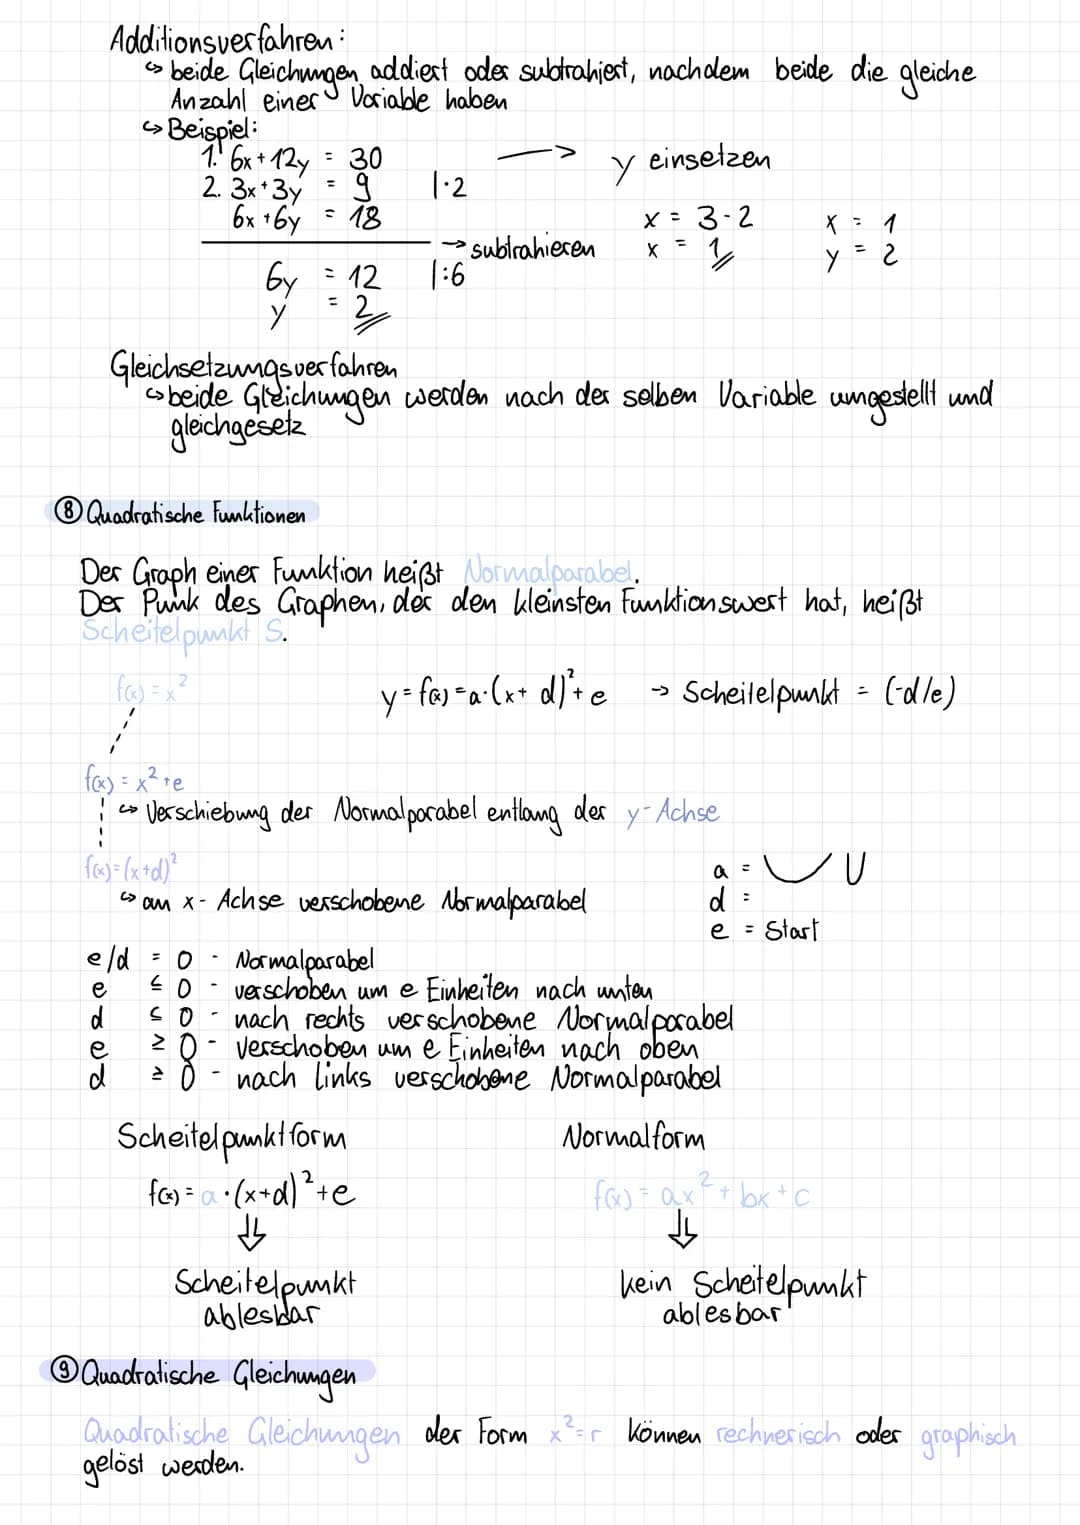 Additionsverfahren:
↪ beide Gleichungen addiert oder subtrahiert, nachdem beide die gleiche
Anzahl einer Variable haben
↪ Beispiel:
1. 6x + 12y = 30 → y einsetzen
2. 3x + 3y = 9 |·2
6x + 6y = 18 x = 3-2 x = 1
→ subtrahieren x = 1 y = 2
6y = 12 |:6
y = 2
Gleichsetzungsverfahren
↪ beide Gleichungen werden nach der selben Variable umgestellt und
gleichgesetz
⑧ Quadratische Funktionen
Der Graph einer Funktion heißt Normalparabel.
Der Punk des Graphen, der den kleinsten Funktionswert hat, heißt
Scheitelpunkt S.
f(x) = x² y = f(x) = a·(x + d)² + e → Scheitelpunkt = (-d/e)
f(x) = x² + e
↪ Verschiebung der Normalparabel entlang der y-Achse
f(x) = (x+d)²
↪ an x-Achse verschobene Normalparabel
a =
d =
e = Start
e/d = 0 - Normalparabel
e ≤ 0 - verschoben um e Einheiten nach unten
d ≤ 0 - nach rechts verschobene Normalparabel
e ≥ 0 - verschoben um e Einheiten nach oben
d ≥ 0 - nach links verschobene Normalparabel
Scheitelpunktform Normalform
f(x) = a·(x+d)² + e f(x) = ax² + bx + c
⇓ ⇓
Scheitelpunkt kein Scheitelpunkt
ablesbar ablesbar
⑨ Quadratische Gleichungen
Quadratische Gleichungen der Form x²=r können rechnerisch oder graphisch
gelöst werden.